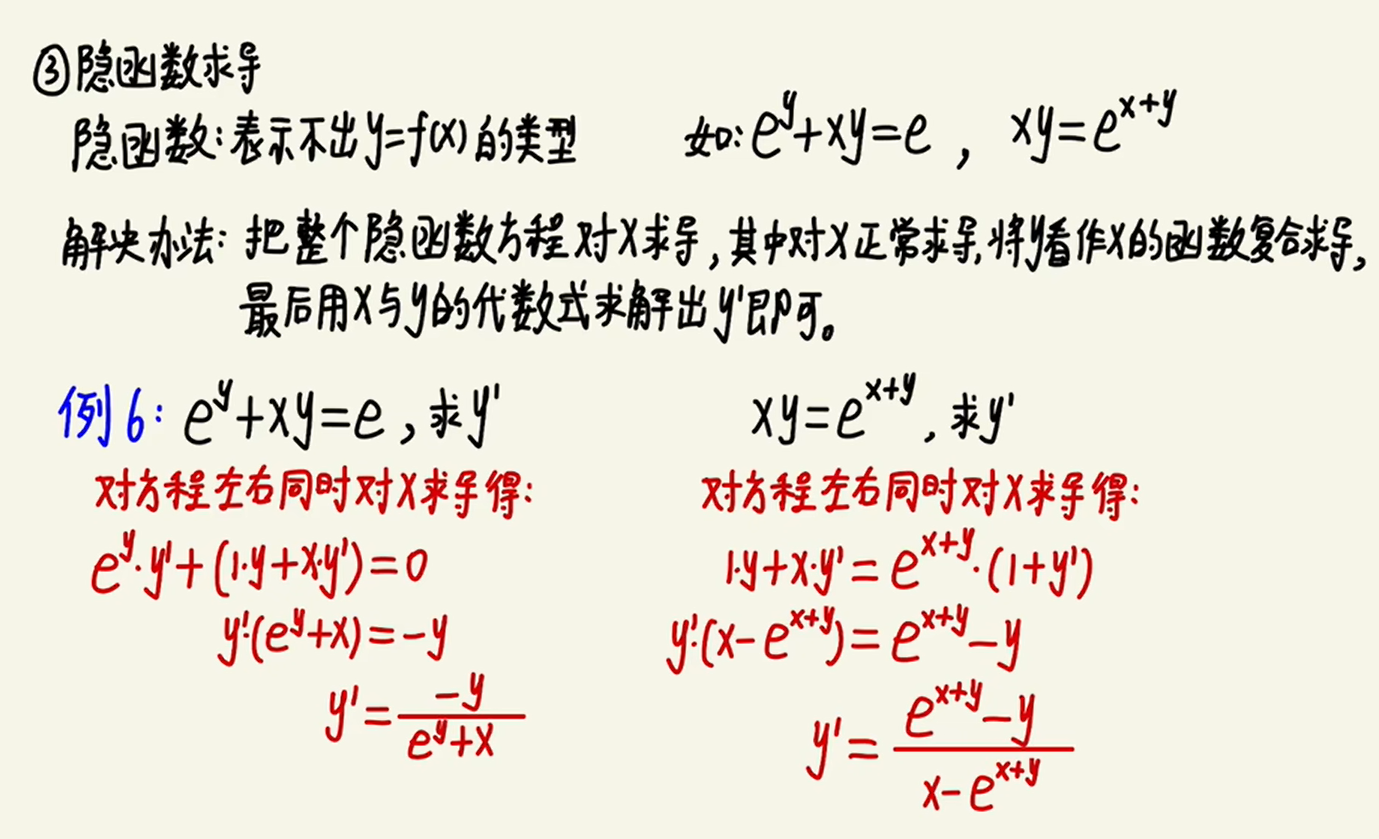 ③隐函数求导
隐函数:表示不出y=f(x)的类型 如:e^y+xy=e, xy=e^{x+y}
解决办法:把整个隐函数方程对x求导,其中对x正常求导,将y看作x的函数复合求导,
最后用x与y的代数式求解出y'即可。
例6:e^y+xy=e,求y'
对方程左右同时对x求导得:
e^y·y'+(1·y+x·y')=0
y'·(e^y+x)=-y
y'=\frac{-y}{e^y+x}
xy=e^{x+y},求y'
对方程左右同时对x求导得:
1·y+x·y'=e^{x+y}·(1+y')
y'·(x-e^{x+y})=e^{x+y}-y
y'=\frac{e^{x+y}-y}{x-e^{x+y}}